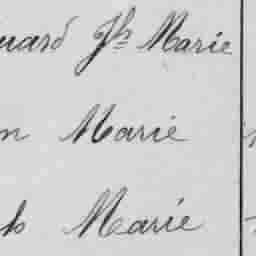 uard Jh Marie
n Marie
h Marie